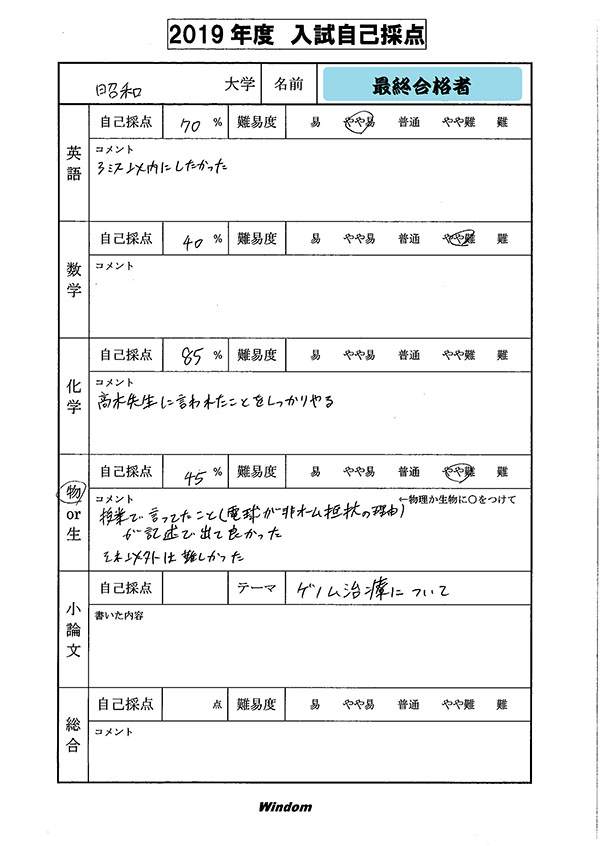 2019年度 入試自己採点
昭和 大学 名前 最終合格者
英語
自己採点 70 % 難易度 易 やや易 普通 やや難 難
コメント
3ミス以内にしたかった
数学
自己採点 40 % 難易度 易 やや易 普通 やや難 難
コメント
化学
自己採点 85 % 難易度 易 やや易 普通 やや難 難
コメント
高木先生に言われたことをしっかりやる
物or生
自己採点 45 % 難易度 易 やや易 普通 やや難 難
コメント ←物理か生物に○をつけて
授業で言ってたこと(電球が非オーム抵抗の理由)
が記述で出て良かった
それ以外は難しかった
小論文
自己採点 テーマ ゲノム治療について
書いた内容
総合
自己採点 点 難易度 易 やや易 普通 やや難 難
コメント
Windom